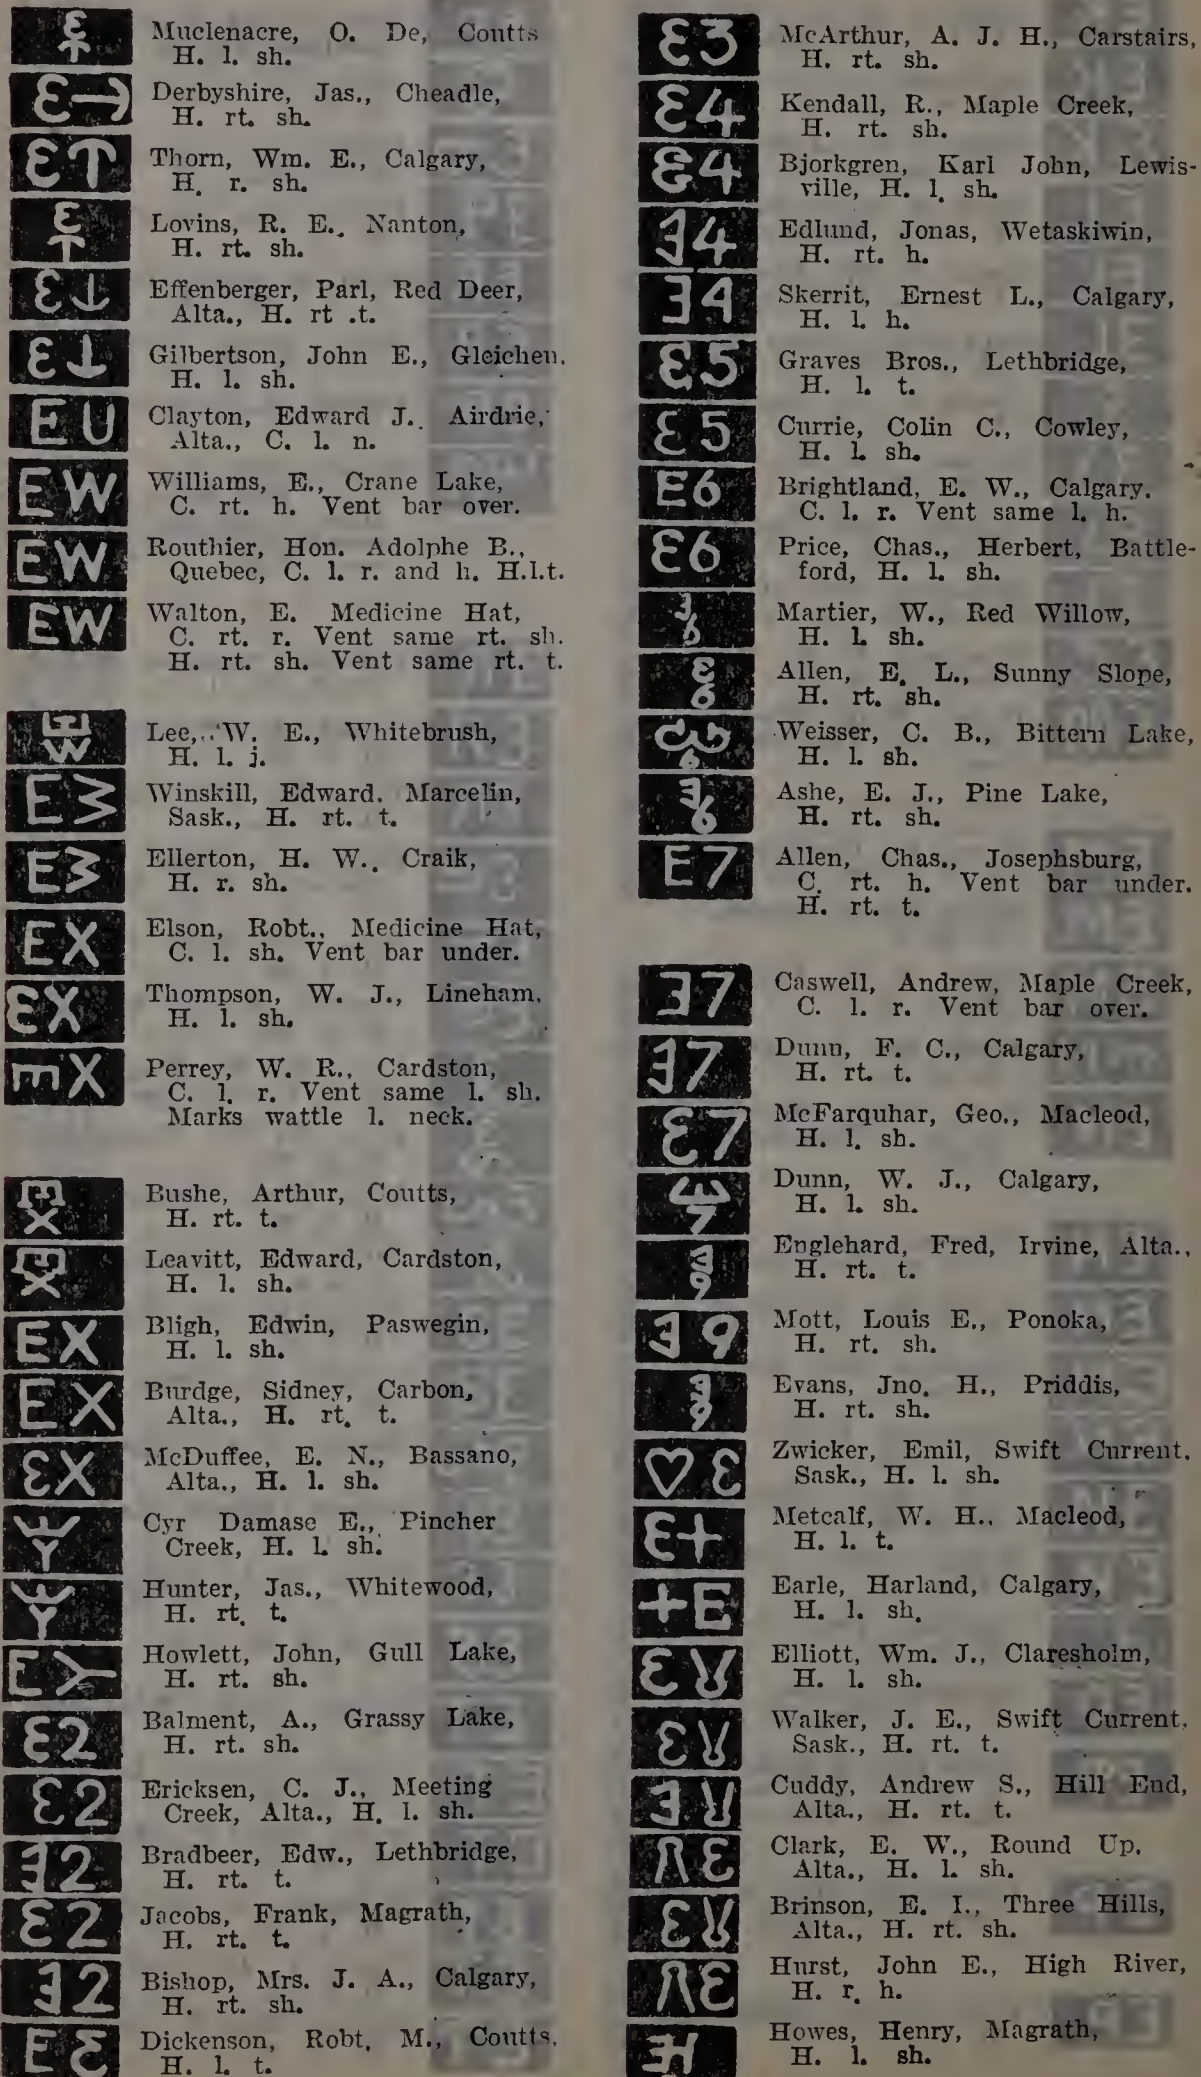 Muclenacre, O. De, Coutts
H. l. sh.
Derbyshire, Jas., Cheadle,
H. rt. sh.
Thorn, Wm. E., Calgary,
H. r. sh.
Lovins, R. E., Nanton,
H. rt. sh.
Effenberger, Parl, Red Deer,
Alta., H. rt .t.
Gilbertson, John E., Gleichen.
H. l. sh.
EU Clayton, Edward J., Airdrie,
Alta., C. l. n.
EW Williams, E., Crane Lake,
C. rt. h. Vent bar over.
EW Routhier, Hon. Adolphe B.,
Quebec, C. l. r. and h. H.l.t.
EW Walton, E. Medicine Hat,
C. rt. r. Vent same rt. sh.
H. rt. sh. Vent same rt. t.
Lee, W. E., Whitebrush,
H. l. j.
Winskill, Edward. Marcelin,
Sask., H. rt. t.
Ellerton, H. W., Craik,
H. r. sh.
EX Elson, Robt., Medicine Hat,
C. l. sh. Vent bar under.
EX Thompson, W. J., Lineham,
H. l. sh.
Perrey, W. R., Cardston,
C. l. r. Vent same l. sh.
Marks wattle l. neck.
Bushe, Arthur, Coutts,
H. rt. t.
Leavitt, Edward, Cardston,
H. l. sh.
EX Bligh, Edwin, Paswegin,
H. l. sh.
EX Burdge, Sidney, Carbon,
Alta., H. rt. t.
EX McDuffee, E. N., Bassano,
Alta., H. l. sh.
Cyr Damase E., Pincher
Creek, H. l. sh.
Hunter, Jas., Whitewood,
H. rt. t.
Howlett, John, Gull Lake,
H. rt. sh.
E2 Balment, A., Grassy Lake,
H. rt. sh.
E2 Ericksen, C. J., Meeting
Creek, Alta., H. l. sh.
Bradbeer, Edw., Lethbridge,
H. rt. t.
E2 Jacobs, Frank, Magrath,
H. rt. t.
Bishop, Mrs. J. A., Calgary,
H. rt. sh.
EE Dickenson, Robt. M., Coutts,
H. l. t.
E3 McArthur, A. J. H., Carstairs,
H. rt. sh.
E4 Kendall, R., Maple Creek,
H. rt. sh.
Bjorkgren, Karl John, Lewis-
ville, H. l. sh.
Edlund, Jonas, Wetaskiwin,
H. rt. h.
Skerrit, Ernest L., Calgary,
H. l. h.
E5 Graves Bros., Lethbridge,
H. l. t.
E5 Currie, Colin C., Cowley,
H. l. sh.
E6 Brightland, E. W., Calgary.
C. l. r. Vent same l. h.
E6 Price, Chas., Herbert, Battle-
ford, H. l. sh.
Martier, W., Red Willow,
H. l. sh.
Allen, E. L., Sunny Slope,
H. rt. sh.
Weisser, C. B., Bittern Lake,
H. l. sh.
Ashe, E. J., Pine Lake,
H. rt. sh.
E7 Allen, Chas., Josephsburg,
C. rt. h. Vent bar under.
H. rt. t.
Caswell, Andrew, Maple Creek,
C. l. r. Vent bar over.
Dunn, F. C., Calgary,
H. rt. t.
E7 McFarquhar, Geo., Macleod,
H. l. sh.
Dunn, W. J., Calgary,
H. l. sh.
Englehard, Fred, Irvine, Alta.,
H. rt. t.
Mott, Louis E., Ponoka,
H. rt. sh.
Evans, Jno. H., Priddis,
H. rt. sh.
Zwicker, Emil, Swift Current.
Sask., H. l. sh.
E+ Metcalf, W. H., Macleod,
H. l. t.
+E Earle, Harland, Calgary,
H. l. sh.
Elliott, Wm. J., Claresholm,
H. l. sh.
Walker, J. E., Swift Current,
Sask., H. rt. t.
Cuddy, Andrew S., Hill End,
Alta., H. rt. t.
Clark, E. W., Round Up.
Alta., H. l. sh.
Brinson, E. I., Three Hills,
Alta., H. rt. sh.
Hurst, John E., High River,
H. r. h.
Howes, Henry, Magrath,
H. l. sh.